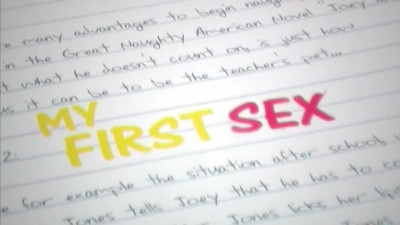 e many advantages to begin naug
n the Great Naughty American Novel "Joey a
t what he doesn't count on is just how
us it can be to be the teacher's pet...
MY
FIRST SEX
2:
e for example the situation after school
Jones tells Joey that he has to co
Jones licks her lips